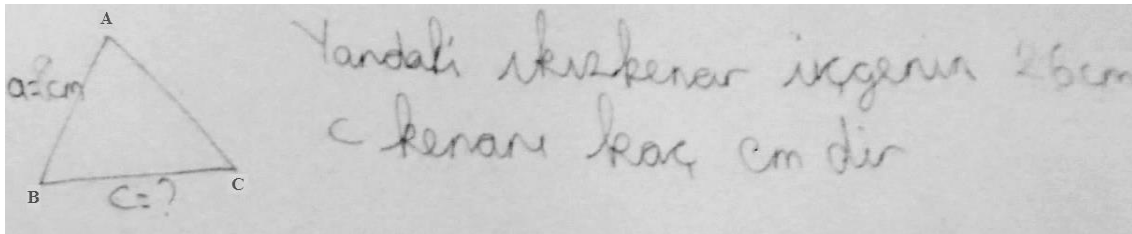 A
Yandaki ikizkenar üçgenin 26cm
c kenarı kaç cm dir
B
c=?
C